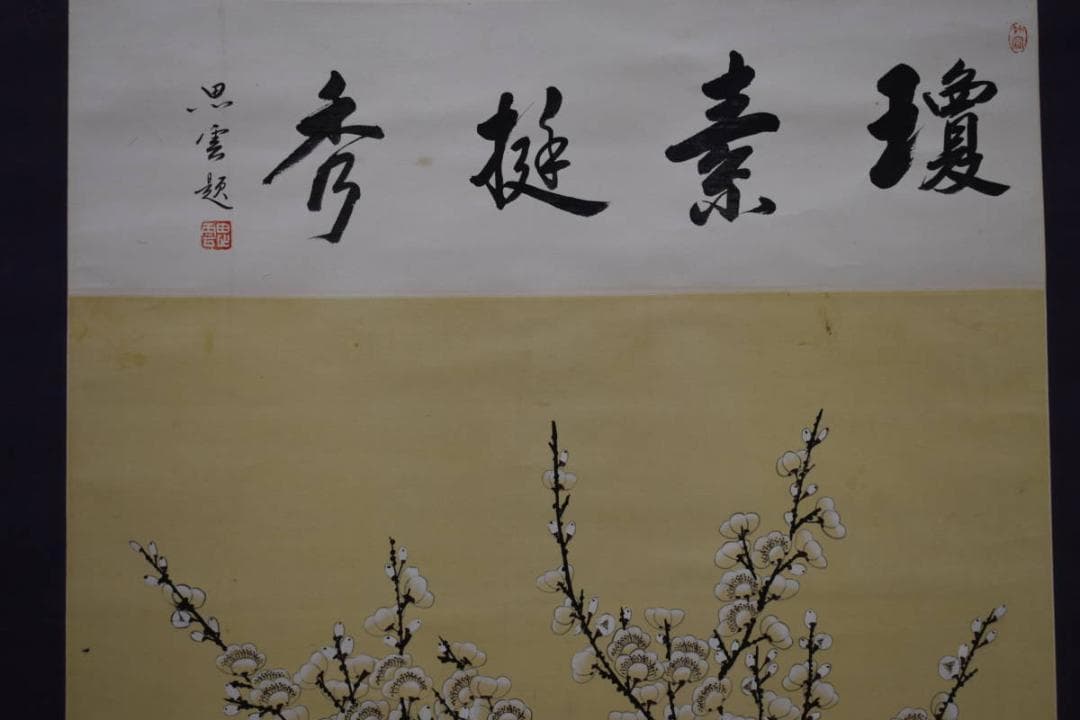 瓊素挺秀
思雲題